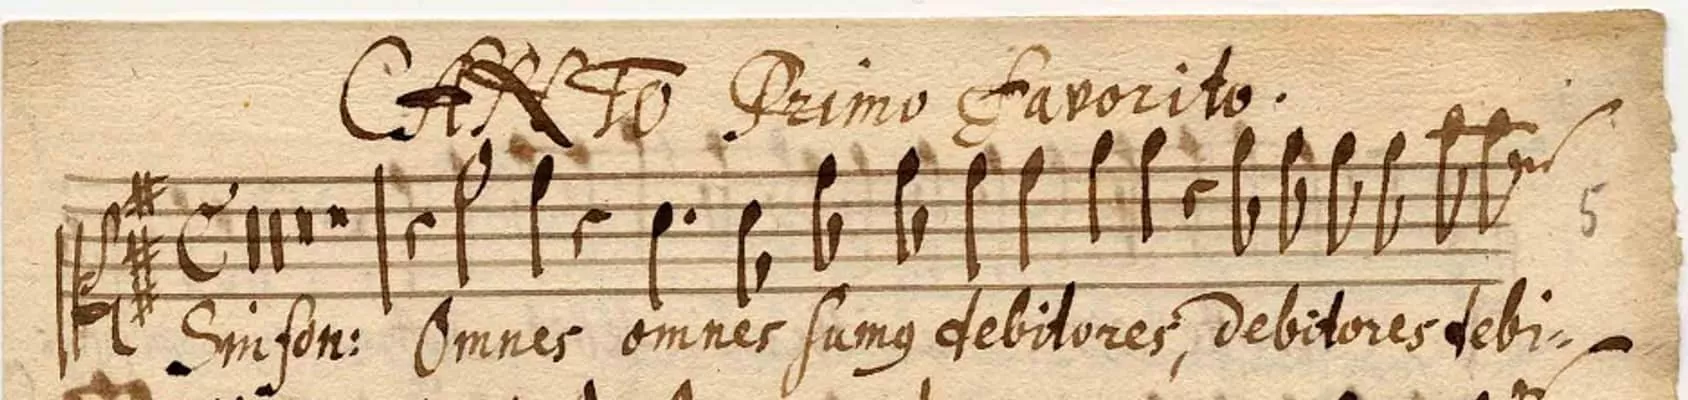 CANTO Primo Favorito.
5
Sinfon: Omnes omnes sumꝰ debitores, debitores debi=